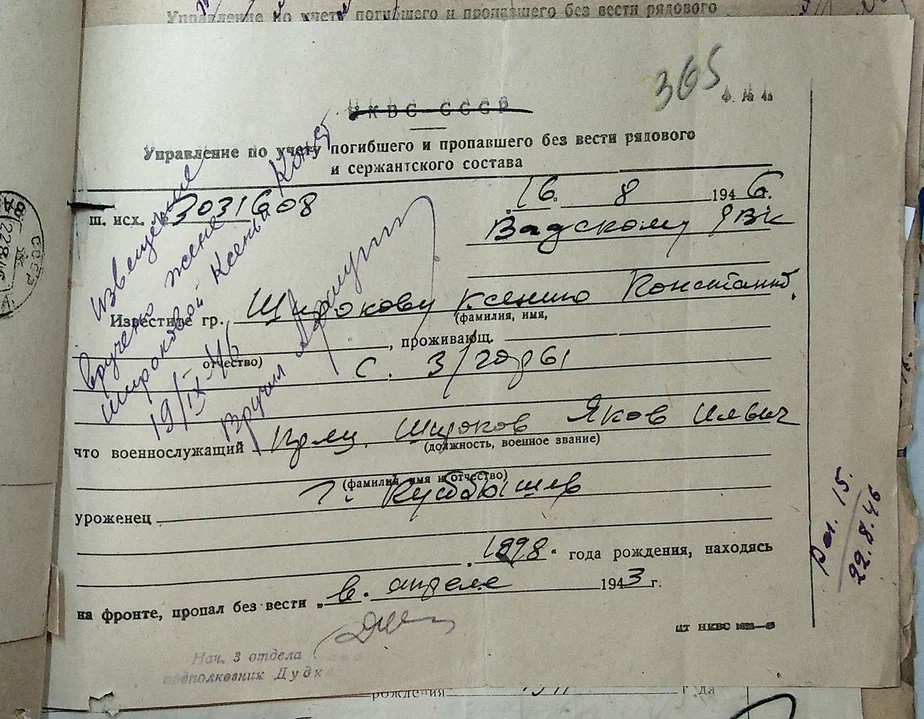 Управление по учету погибшего и пропавшего без вести рядового
365
Ф. № 4а
НКВС СССР
Управление по учету погибшего и пропавшего без вести рядового
и сержантского состава
16. 8 1946.
ш. исх. № 3031608
Вадскому РВК
Известите гр. Широкову Ксению Констант.
(фамилия, имя,
отчество)
, проживающ.
с. З/горы
что военнослужащий Кр-ц. Широков Яков Ильич
(должность, военное звание)
(фамилия, имя и отчество)
уроженец г. Куйбышев
1898. года рождения, находясь
на фронте, пропал без вести в. апреле 1943 г.
ЦТ НКВС
Нач. 3 отдела
подполковник Дудка
Извещение
вручено жене
Широковой Ксенье Конст
19/IX-46
Вручил
22.8.46
СССР
рождения г да